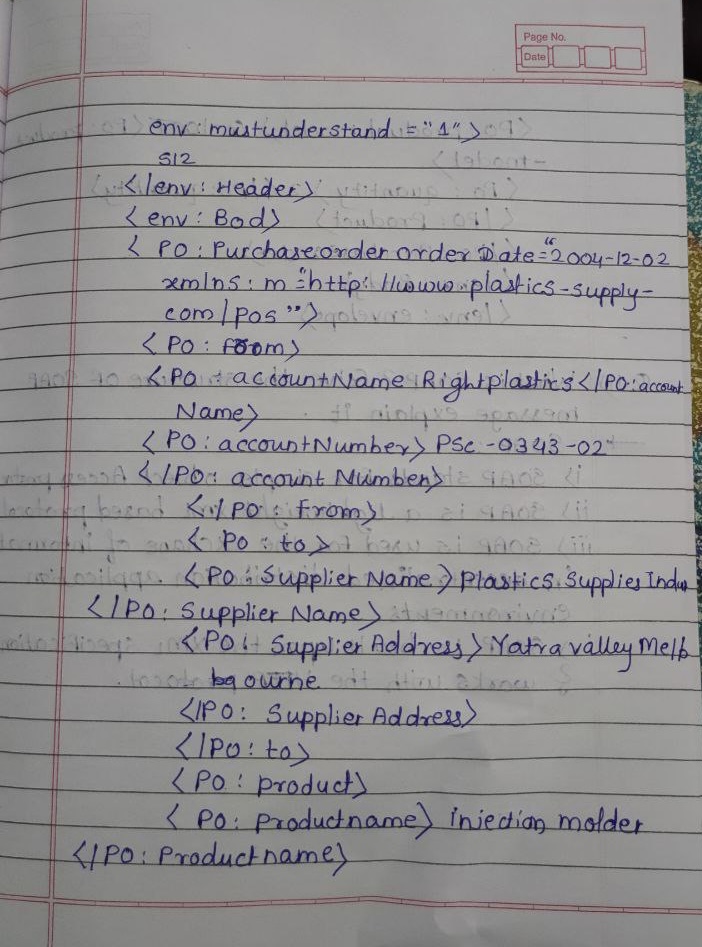 Page No.
Date
env: mustunderstand = "1">
512
</env: Header>
<env: Bod>
< PO: Purchaseorder order Date="2004-12-02
xmlns: m "=http: //www.plastics-supply-
com/pos">
<PO: from>
<PO: accountName Rightplastics</PO:account
Name>
<PO: accountNumber> PSC-0343-02
</PO: account Number>
</PO: from>
<PO: to>
<PO: Supplier Name> Plastics Supplies Indu
</PO: Supplier Name>
<PO: Supplier Address> Yatra valley Melb
bourne
</PO: Supplier Address>
</PO: to>
<PO: product>
< PO: productname> injection molder
</PO: Productname>